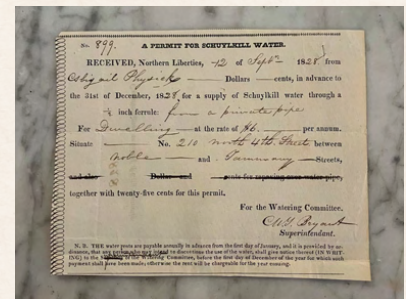 No. 899. A PERMIT FOR SCHUYLKILL WATER.
RECEIVED, Northern Liberties, 12 of Sept. 1828 from
Abigail Physick Dollars cents, in advance to
the 31st of December, 1828 for a supply of Schuylkill water through a
inch ferrule: from a private pipe
For Dwelling at the rate of $6. per annum.
Situate No. 210 north 4th Street between
Noble and Tammany Streets,
and also Dollar and cents for repairing over water pipe,
together with twenty-five cents for this permit.
For the Watering Committee.
Bryant
Superintendant.
N. B. THE water rents are payable annually in advance from the first day of January, and it is provided by ordinance, that any person who may intend to discontinue the use of the water, shall give notice thereof (IN WRITING) to the of the Watering Committee, before the first day of December of the year for which such
payment shall have been made; otherwise the rent will be chargeable for the year ensuing.